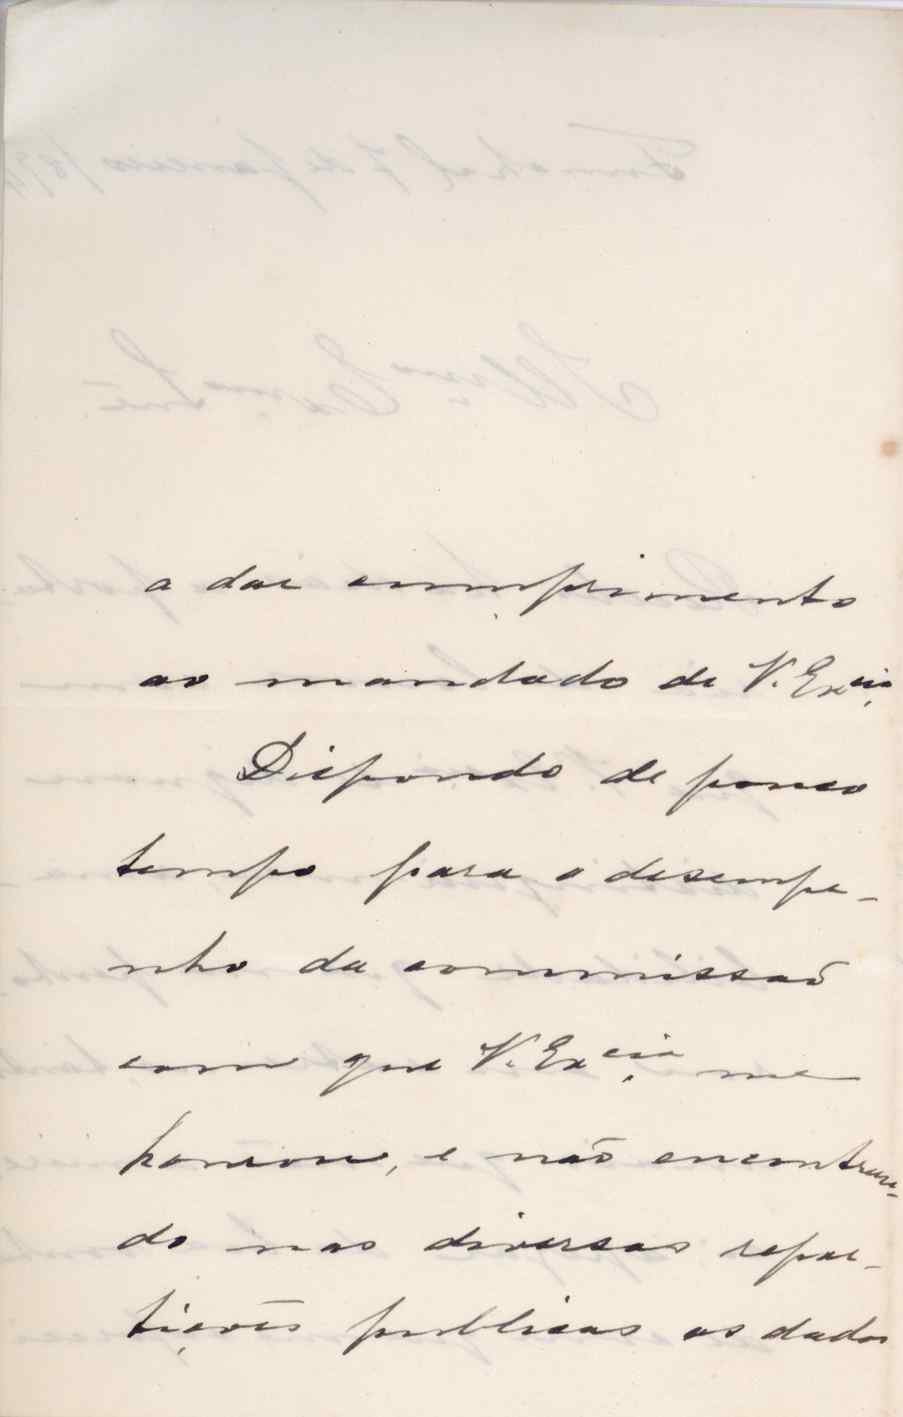 a dar cumprimento
ao mandado de V. Ex.cia
Dispondo de pouco
tempo para o desempe-
nho da commissaõ
com que V. Ex.cia me
honrou, e naõ encontran-
do nas diversas repar-
tições publicas os dados